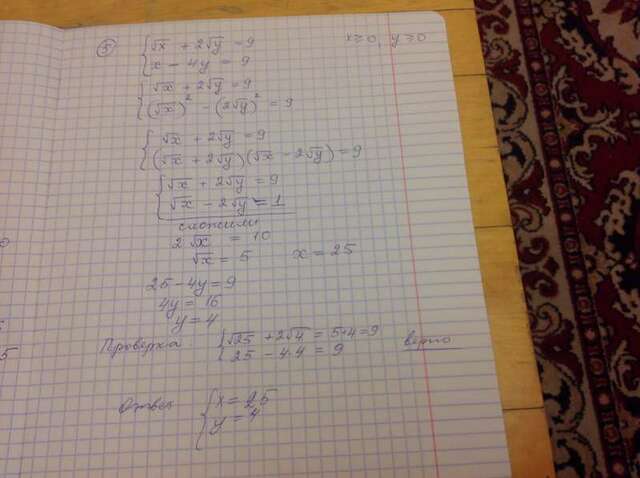 ⑤ { √x + 2√y = 9 x ≥ 0, y ≥ 0
x − 4y = 9
{ √x + 2√y = 9
(√x)² − (2√y)² = 9
{ √x + 2√y = 9
(√x + 2√y)(√x − 2√y) = 9
{ √x + 2√y = 9
√x − 2√y = 1
сложили
2√x = 10
√x = 5 x = 25
25 − 4y = 9
4y = 16
y = 4
Проверка { √25 + 2√4 = 5+4=9 верно
25 − 4·4 = 9
Ответ { x = 25
y = 4
5